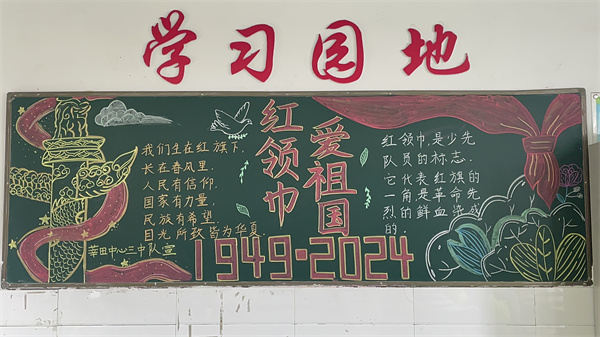 学习园地
我们生在红旗下,
长在春风里,
人民有信仰,
国家有力量,
民族有希望.
目光所致皆为华夏
莘田中心三中队宣
红领巾
爱祖国
1949·2024
红领巾,是少先
队员的标志.
它代表红旗的
一角是革命先
烈的鲜血染成
的.